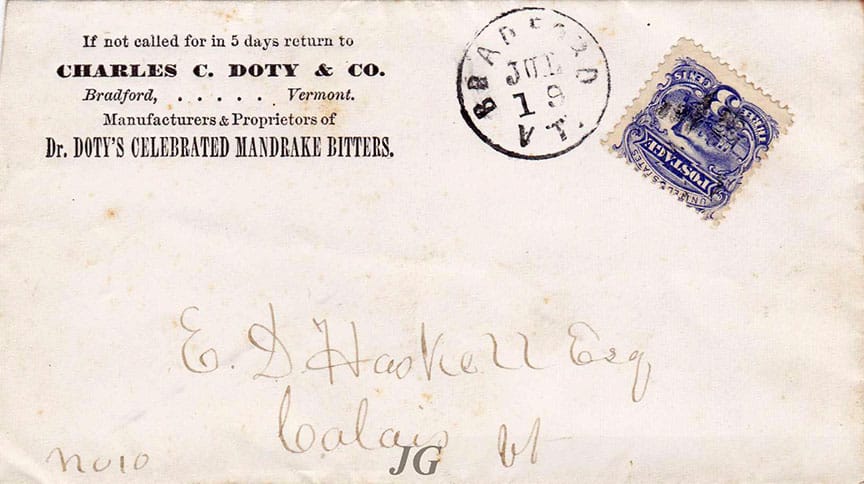 If not called for in 5 days return to
CHARLES C. DOTY & CO.
Bradford, . . . . . Vermont.
Manufacturers & Proprietors of
Dr. DOTY'S CELEBRATED MANDRAKE BITTERS.
BRADFORD
JUL
19
VT.
THREE 3 CENTS
POSTAGE
UNITED STATES
E. D. Haskell Esq
Calais Vt
no 10
JG